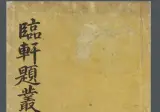 臨軒題叢